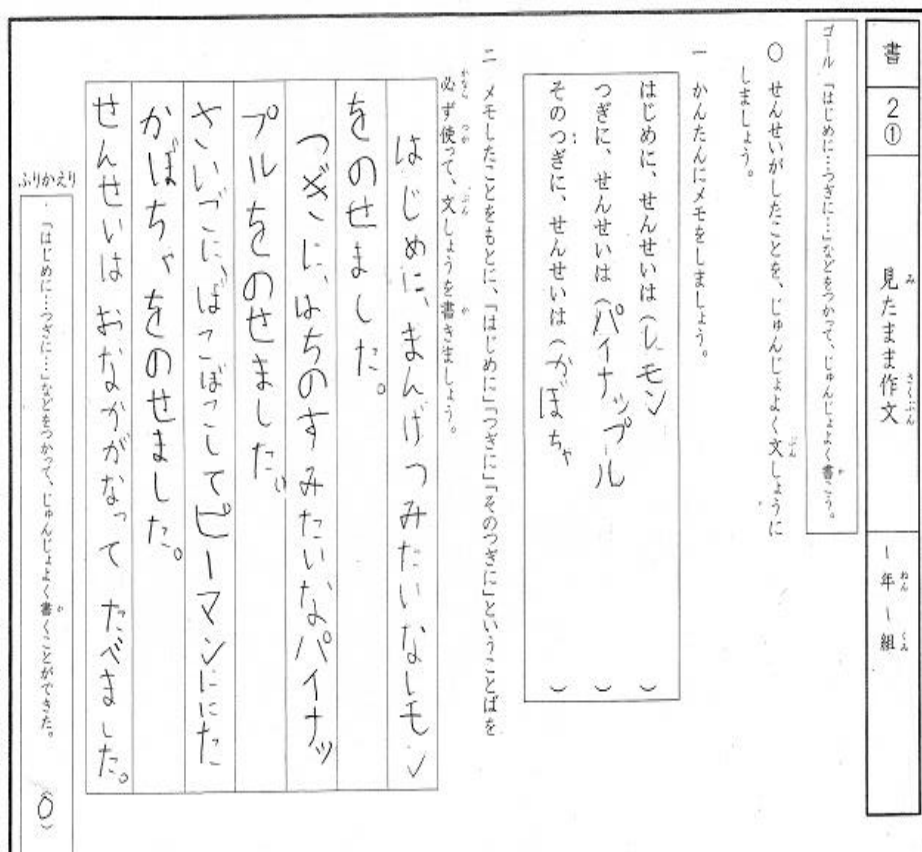 書
2①
見たまま作文
みさくぶん
1年1組
ねんくみ
ゴール 「はじめに…つぎに…」などをつかって、じゅんじょよく書こう。
か
○ せんせいがしたことを、じゅんじょよく文しょうに
ぶん
しましょう。
一 かんたんにメモをしましょう。
はじめに、せんせいは(レモン )
つぎに、せんせいは(パイナップル )
そのつぎに、せんせいは(かぼちゃ )
二 メモしたことをもとに、「はじめに」「つぎに」「そのつぎに」ということばを
必ず使って、文しょうを書きましょう。
かならつかぶんか
はじめに、まんげつみたいなレモン
をのせました。
つぎに、はちのすみたいなパイナッ
プルをのせました。
さいごに、ぼこぼこしてピーマンににた
かぼちゃをのせました。
せんせいはおなかがなって たべました。
ふりかえり
・「はじめに…つぎに…」などをつかって、じゅんじょよく書くことができた。 (○)
か